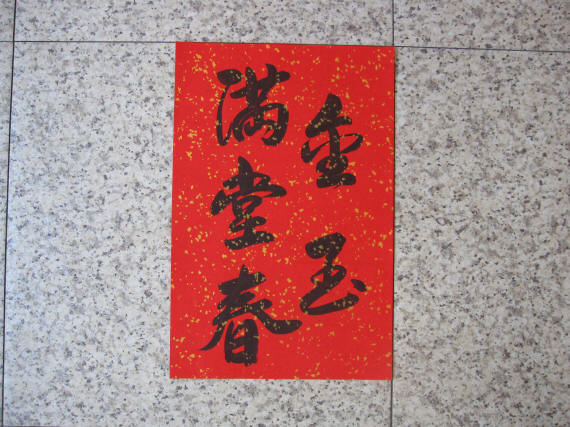 金玉
满堂春